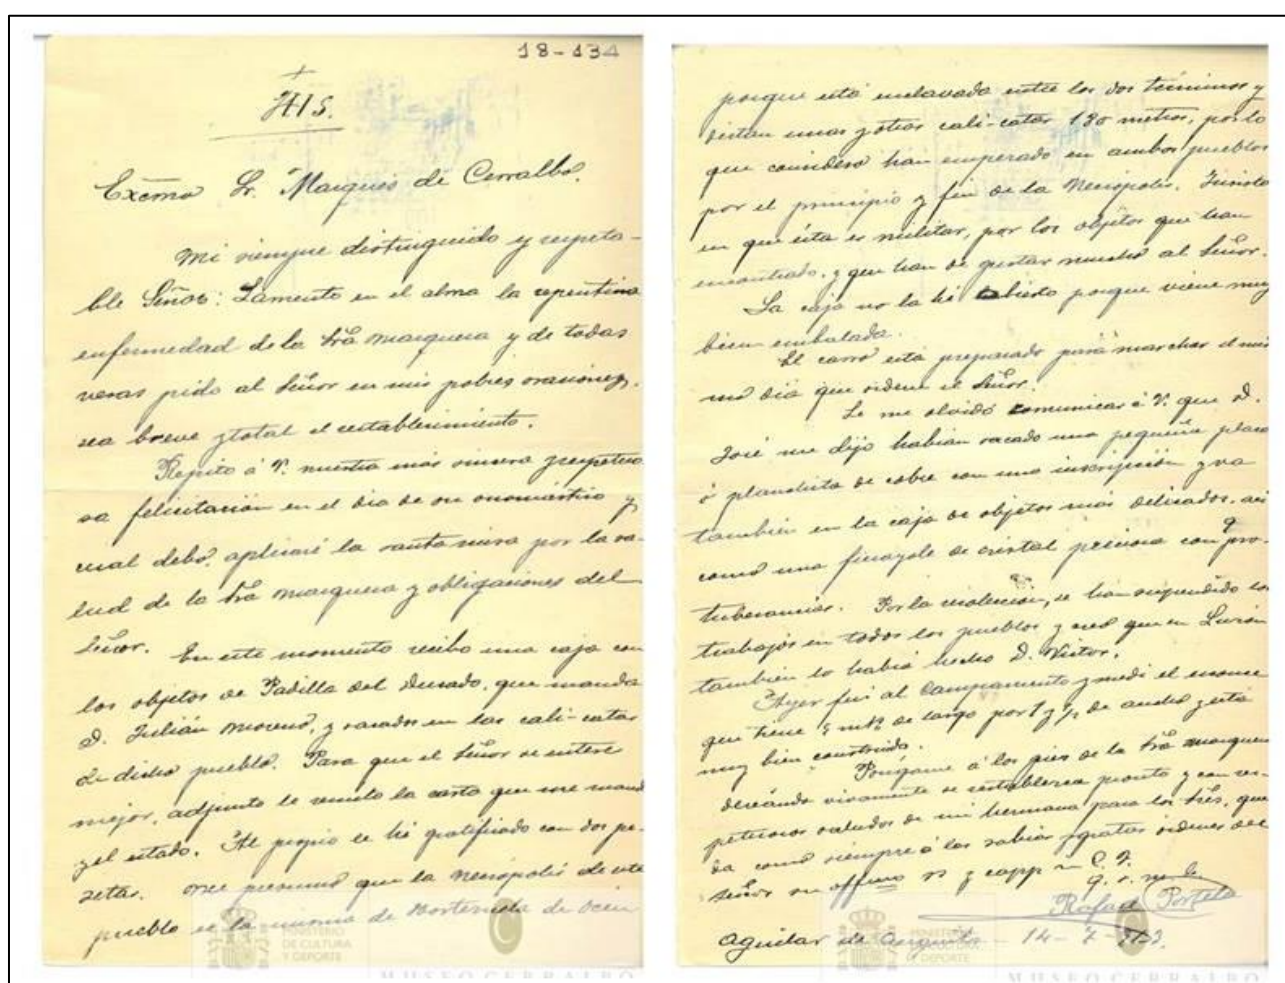 18-134
+
JHS.
Excmo Sr. Marqués de Cerralbo.
Mi siempre distinguido y respeta-
ble Señor: Lamento en el alma la repentina
enfermedad de la Sra Marquesa y de todas
veras pido al Señor en mis pobres oraciones,
sea breve y total el restablecimiento.
Repito á V. nuestra más sincera y respetuo
sa felicitación en el dia de su onomástico y
cual debo, aplicaré la santa misa por la sa-
lud de la Sra Marquesa y obligaciones del
Señor.
En este momento recibo una caja con
los objetos de Padilla del Ducado, que manda
D. Julián Moreno, y sacados en las cali-catas
de dicho pueblo. Para que el Señor se entere
mejor, adjunto le remito la carta que me manda
y el estado. Al propio le hé gratificado con dos pe-
setas. Me presumo que la Necrópolis de este
pueblo es la misma de Hortezuela de Ocen
porque está enclavada entre los dos términos y
distan unas y otras cali-catas 180 metros, por lo
que considero han empezado en ambos pueblos
por el principio y fin de la Necrópolis. Insisto
en que ésta es militar, por los objetos que han
encontrado, y que han de gustar mucho al Señor.
La caja no la hé abierto porque viene muy
bien embalada.
El carro está preparado para marchar el mis
mo dia que ordene el Señor.
Se me olvidó comunicar á V. que D.
José me dijo habian sacado una pequeña placa
ó planchita de cobre con una inscripción y va
también en la caja de objetos más delicados, asi
como una de cristal preciosa con pro-
tuberancias. Por la recolección, se han suspendido los
trabajos en todos los pueblos y creo que en Luzón
también lo habrá hecho D. Victor.
Ayer fui al Campamento y medí el
que tiene 5 mts de largo por 1 y 1/2 de ancho y está
muy bien construido.
Póngame á los pies de la Sra Marquesa
deseándo vivamente se restablezca pronto y con res-
petuosos saludos de mi hermana para los trés, que
da como siempre á las sabias y gratas órdenes del
Señor su affmo s. y capp. Q. J.
q. s. m. b.
Rafael Portela
Aguilar de Anguita 14-7-
MINISTERIO
DE CULTURA
Y DEPORTE
MUSEO CERRALBO
MINISTERIO
DE CULTURA
Y DEPORTE
MUSEO CERRALBO